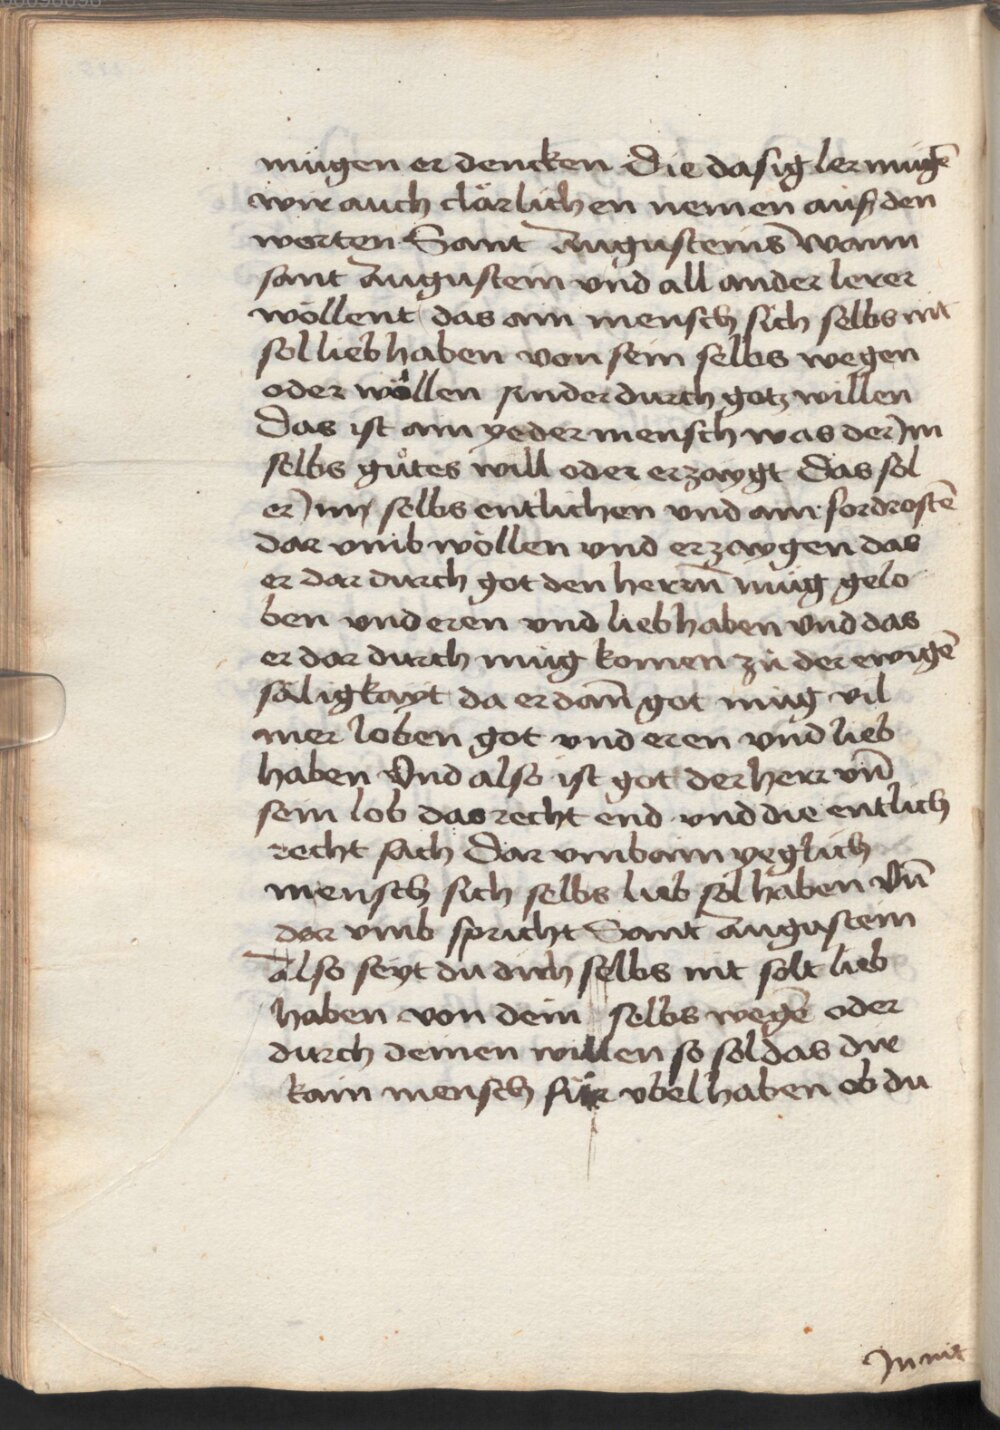 mügen er dencken Die dasig ler müge᷑
wir auch clärlichen nemen auß den
worten Sant Augusteins Wann
sant Augustein vnd all ander lerer
wöllent das ain mensch sich selbs nit
sol lieb haben von sein selbs wegen
oder wöllen sunder durch gotz willen
Das ist ain yeder mensch was der Im
selbs gůtes will oder erzaygt Das sol
er Im selbs entlichen vnd am fordroste̅
dar vmb wöllen vnd erzaygen das
er dar durch got den herrn̅ müg gelo
ben vnd eren vnd lieb haben Vnd das
er dar durch müg komen zů der ewige̅
säligkayt da er dan̅ got müg vil
mer loben got vnd eren vnd lieb
haben Vnd also ist got der herr vn̅
sein lob das recht end vnd die entlich
recht sach Dar vmb ain yeglich
mensch sich selbs lieb sol haben Vn̅
dar vmb spricht Sant Augustein
Also seyt du dich selbs nit solt lieb
haben von dein selbs wege̅ oder
durch deinen willen so sol das die
kain mensch für vbel haben ob du
In nit